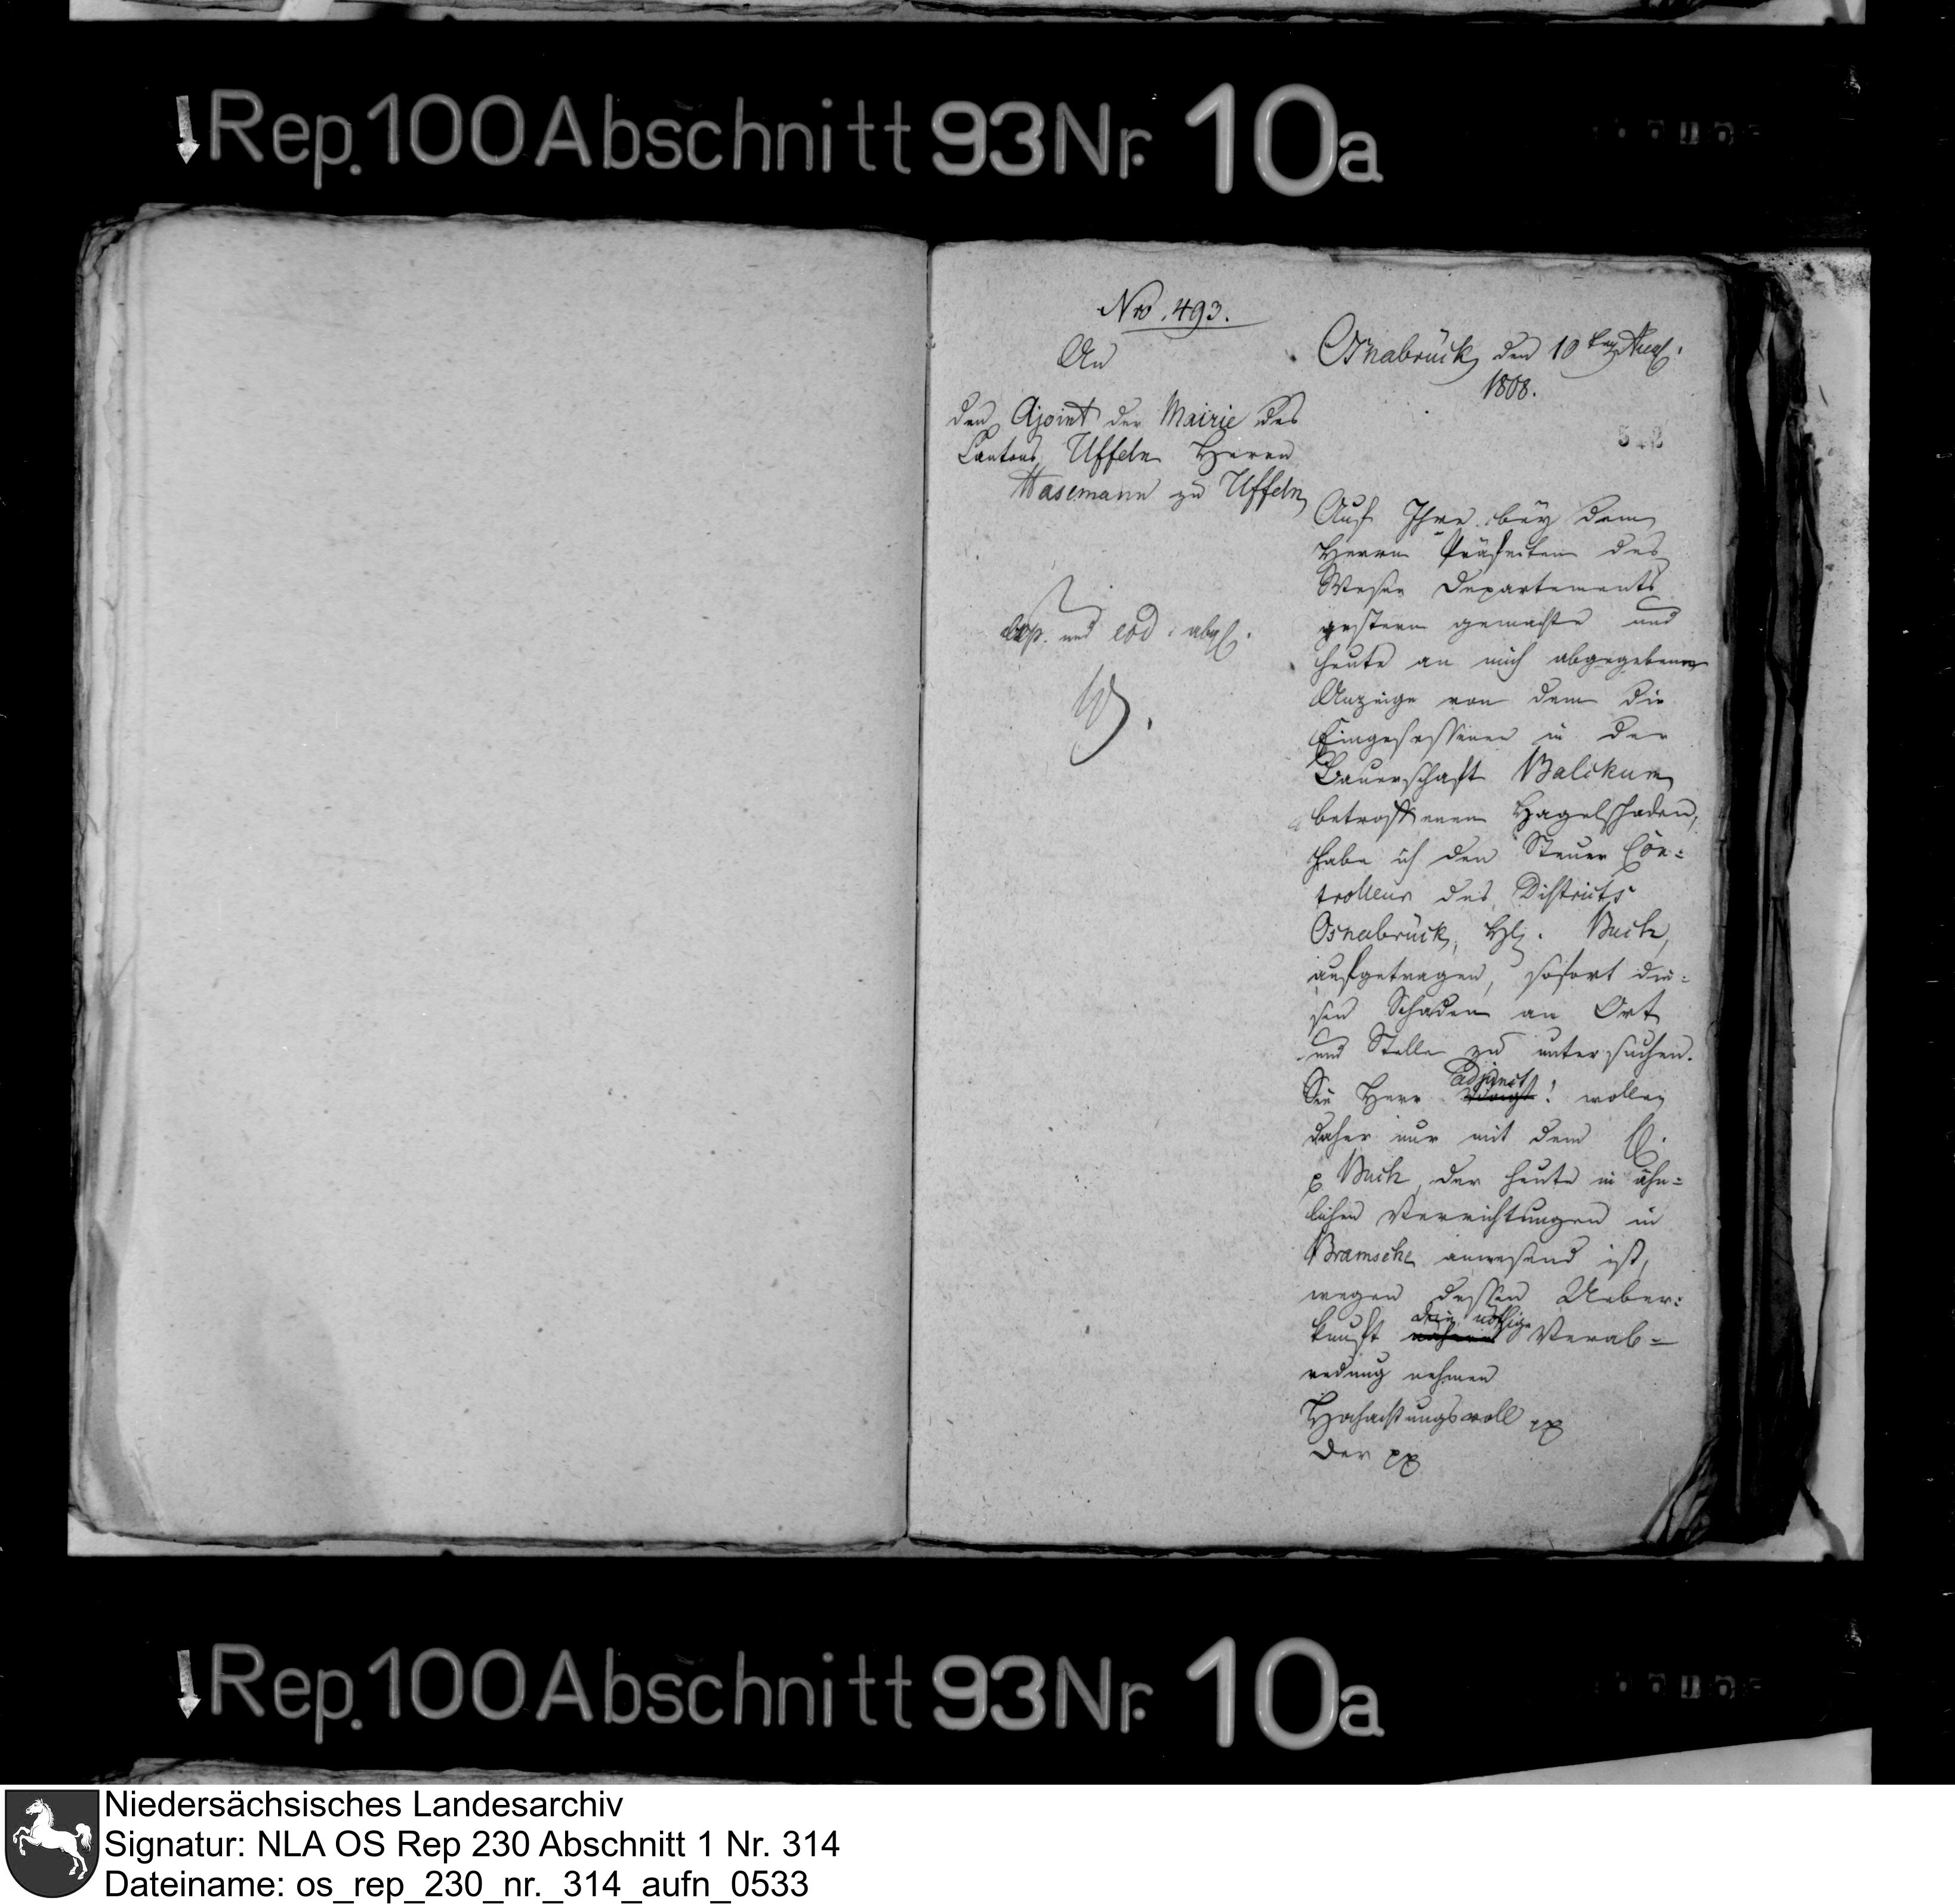 Rep. 100 Abschnitt 93 Nr. 10a
Nro. 493.
An
den Ajoint der Mairie des
Cantons Uffeln Herrn
Wasemann zu Uffeln
exp. und eod. abgl.
Osnabrück, den 10ten Aug.
1808.
542
Auf Ihre bey dem
Herrn Präfecten des
Weser Departements
gestern gemachte und
heute an mich abgegebene
Anzeige von dem die
Eingesessenen in der
Bauerschaft Balckum
betroffenen Hagelschaden,
habe ich den Steuer Con=
trolleur des Districts
Osnabrück, H. Buck,
aufgetragen, sofort die=
sen Schaden an Ort
und Stelle zu untersuchen.
Sie Herr adjunct! wollen
daher nur mit dem H.
p Buck, der heute in ähn=
lichen Verrichtungen in
Bramsche anwesend ist,
wegen dessen Ueber=
kunft die nöthige Verab=
redung nehmen
Hochachtungsvoll pp
Der pp
Rep. 100 Abschnitt 93 Nr. 10a
Niedersächsisches Landesarchiv
Signatur: NLA OS Rep 230 Abschnitt 1 Nr. 314
Dateiname: os_rep_230_nr._314_aufn_0533